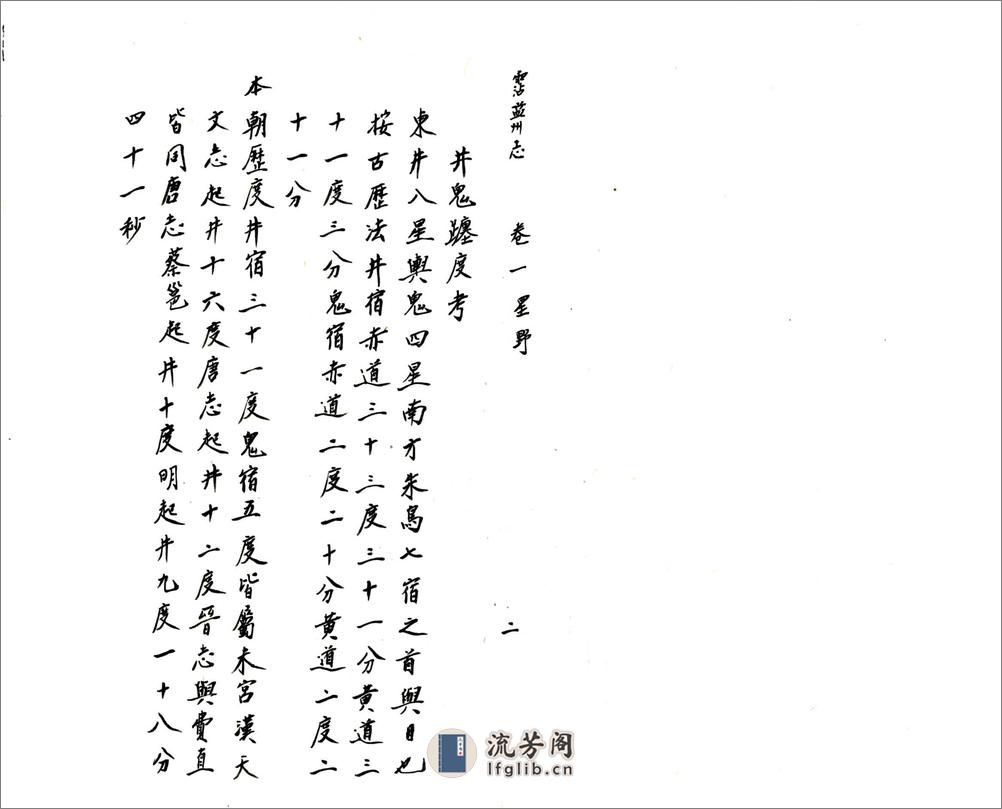 霑益州志 卷一 星野 二
井鬼躔度考
東井八星輿鬼四星南方朱鳥七宿之首輿目也
按古歷法井宿赤道三十三度三十一分黃道三
十一度三分鬼宿赤道二度二十分黃道二度二
十一分
本朝歷度井宿三十一度鬼宿五度皆屬未宮漢天
文志起井十六度唐志起井十二度晉志與費直
皆同唐志蔡邕起井十度明起井九度一十八分
四十一秒
流芳阁
lfglib.cn